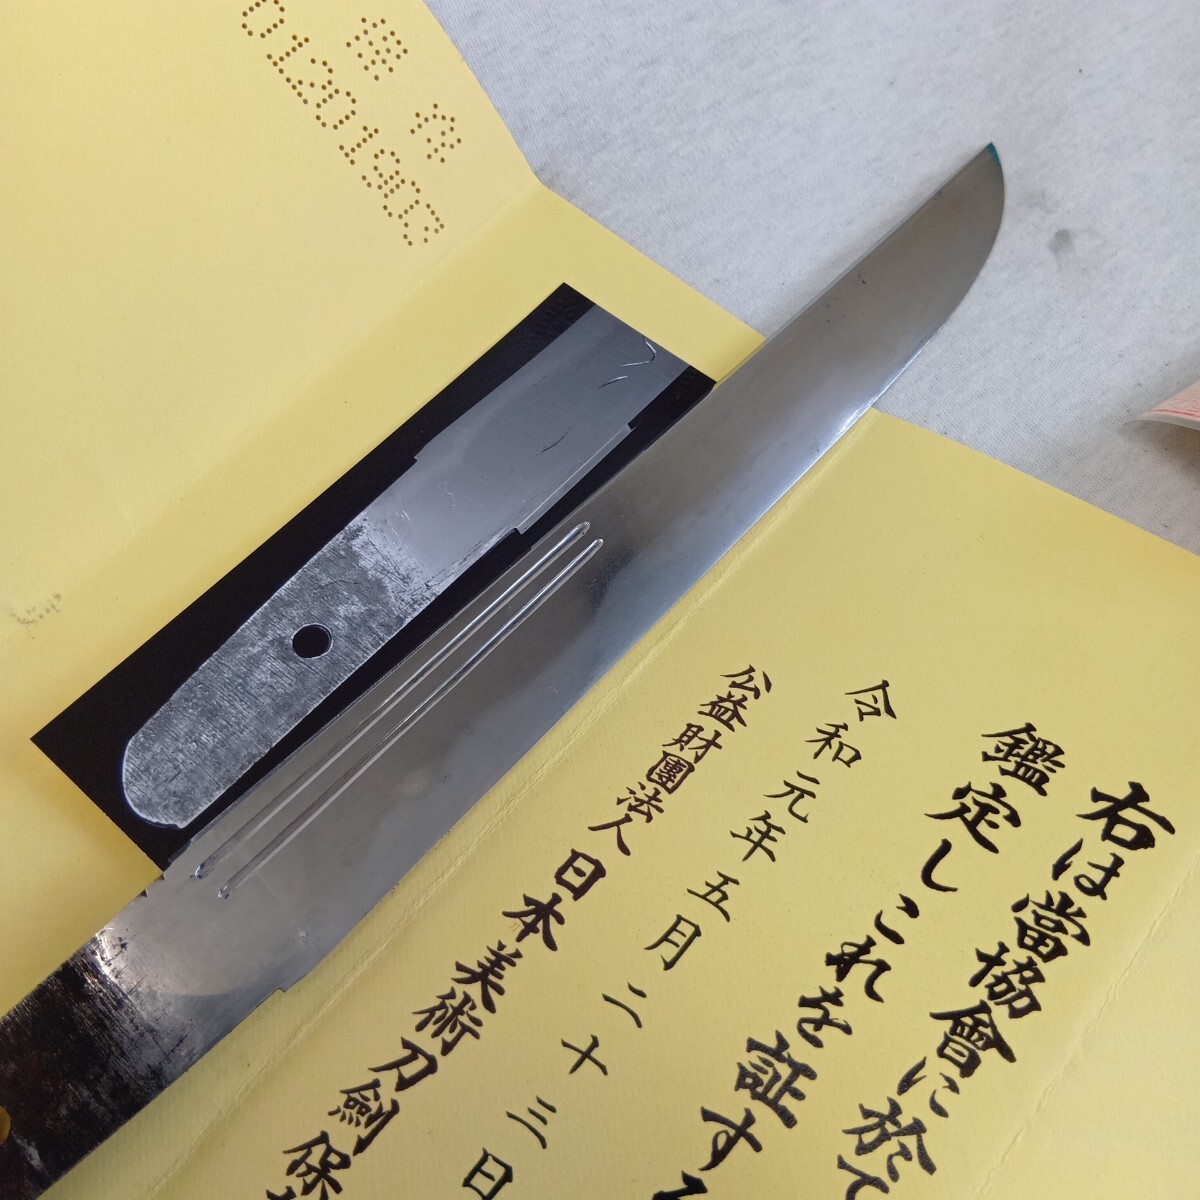 保存
右は當協會に於て
鑑定しこれを証する
令和元年五月二十三日
公益財團法人日本美術刀劍保